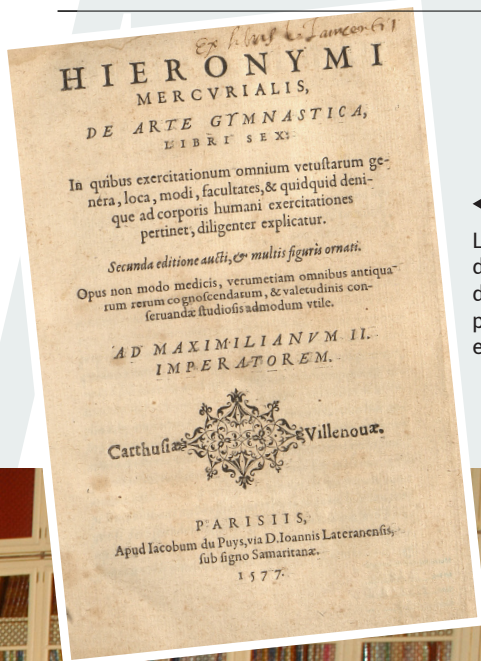 Ex
HIERONYMI
MERCVRIALIS,
DE ARTE GYMNASTICA,
LIBRI SEX:
In quibus exercitationum omnium vetuſtarum ge-
nera, loca, modi, facultates, & quidquid deni-
que ad corporis humani exercitationes
pertinet, diligenter explicatur.
Secunda editione aucti, & multis figuris ornati.
Opus non modo medicis, verumetiam omnibus antiqua-
rum rerum cognoſcendarum, & valetudinis con-
ſeruandæ ſtudioſis admodum vtile.
AD MAXIMILIANVM II.
IMPERATOREM.
Carthuſiæ Villenouæ.
PARISIIS,
Apud Iacobum du Puys, via D. Ioannis Lateranenſis,
ſub ſigno Samaritanæ.
1577.
L
d
d
p
e